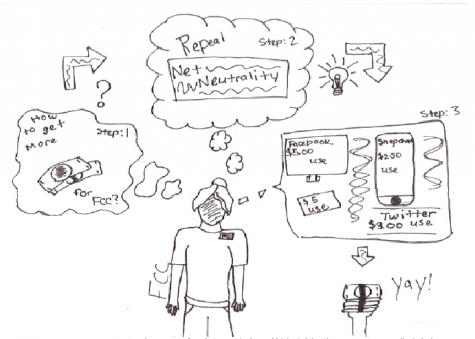 How
to get
More
Step:1
for
FCC?
?
Repeal
Step: 2
Net
Neutrality
Step: 3
Facebook
$5.00
use
$5
use
Snapchat
$2.00
use
Twitter
$3.00 use
FCC
Yay!